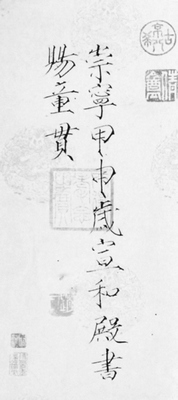 崇寧甲申歲宣和殿書
賜童貫